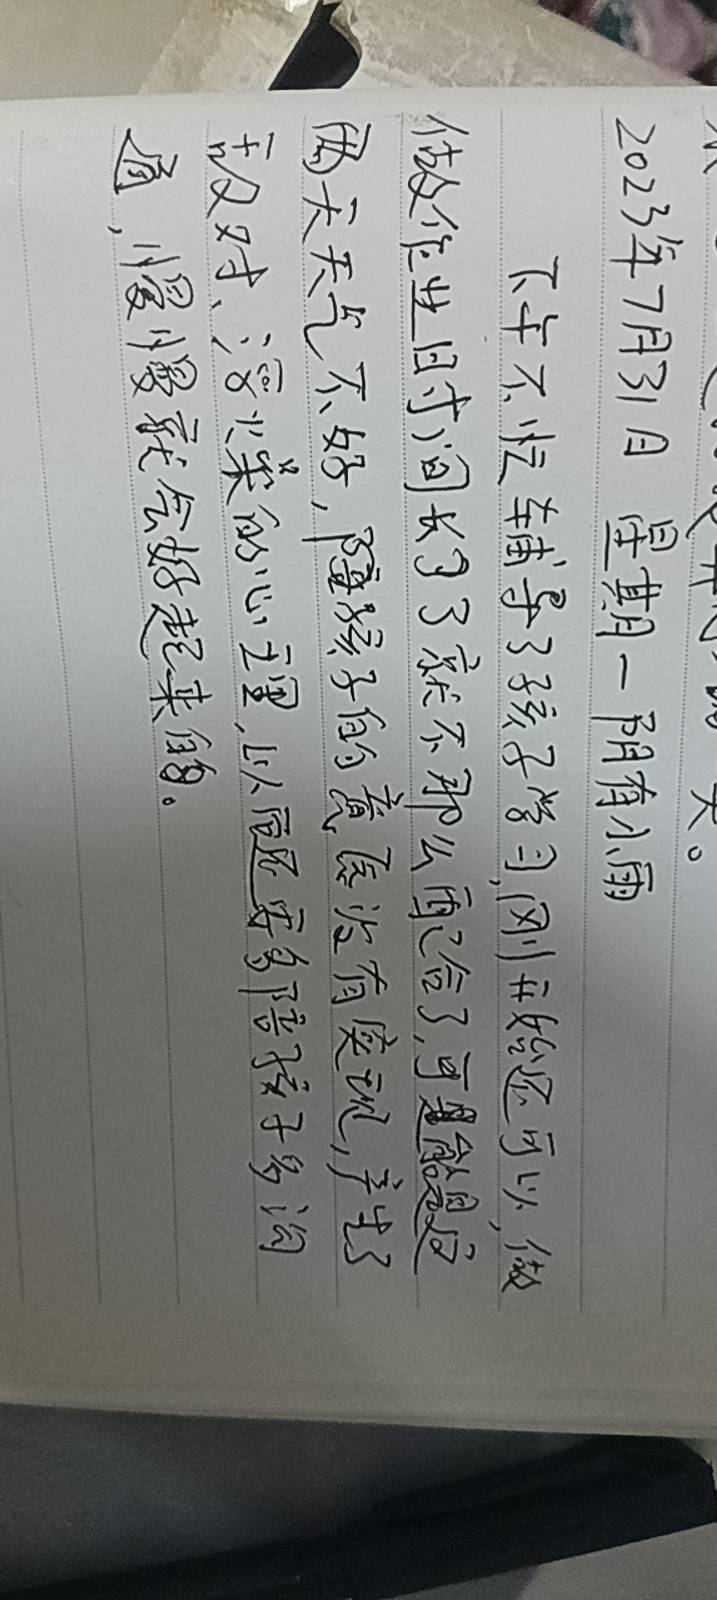 天。
2023年7月31日 星期一 阴有小雨
下午不忙辅导了孩子学习,刚开始还可以,做
做作业时间长了就不那么配合了,可能是这
两天天气不好,陪孩子的意愿没有实现,产生了
敌对、的心理,以后还要多陪孩子多沟
通,慢慢就会好起来的。